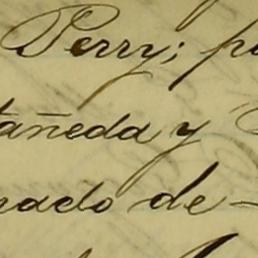 Perry; p
tañeda y
nado de